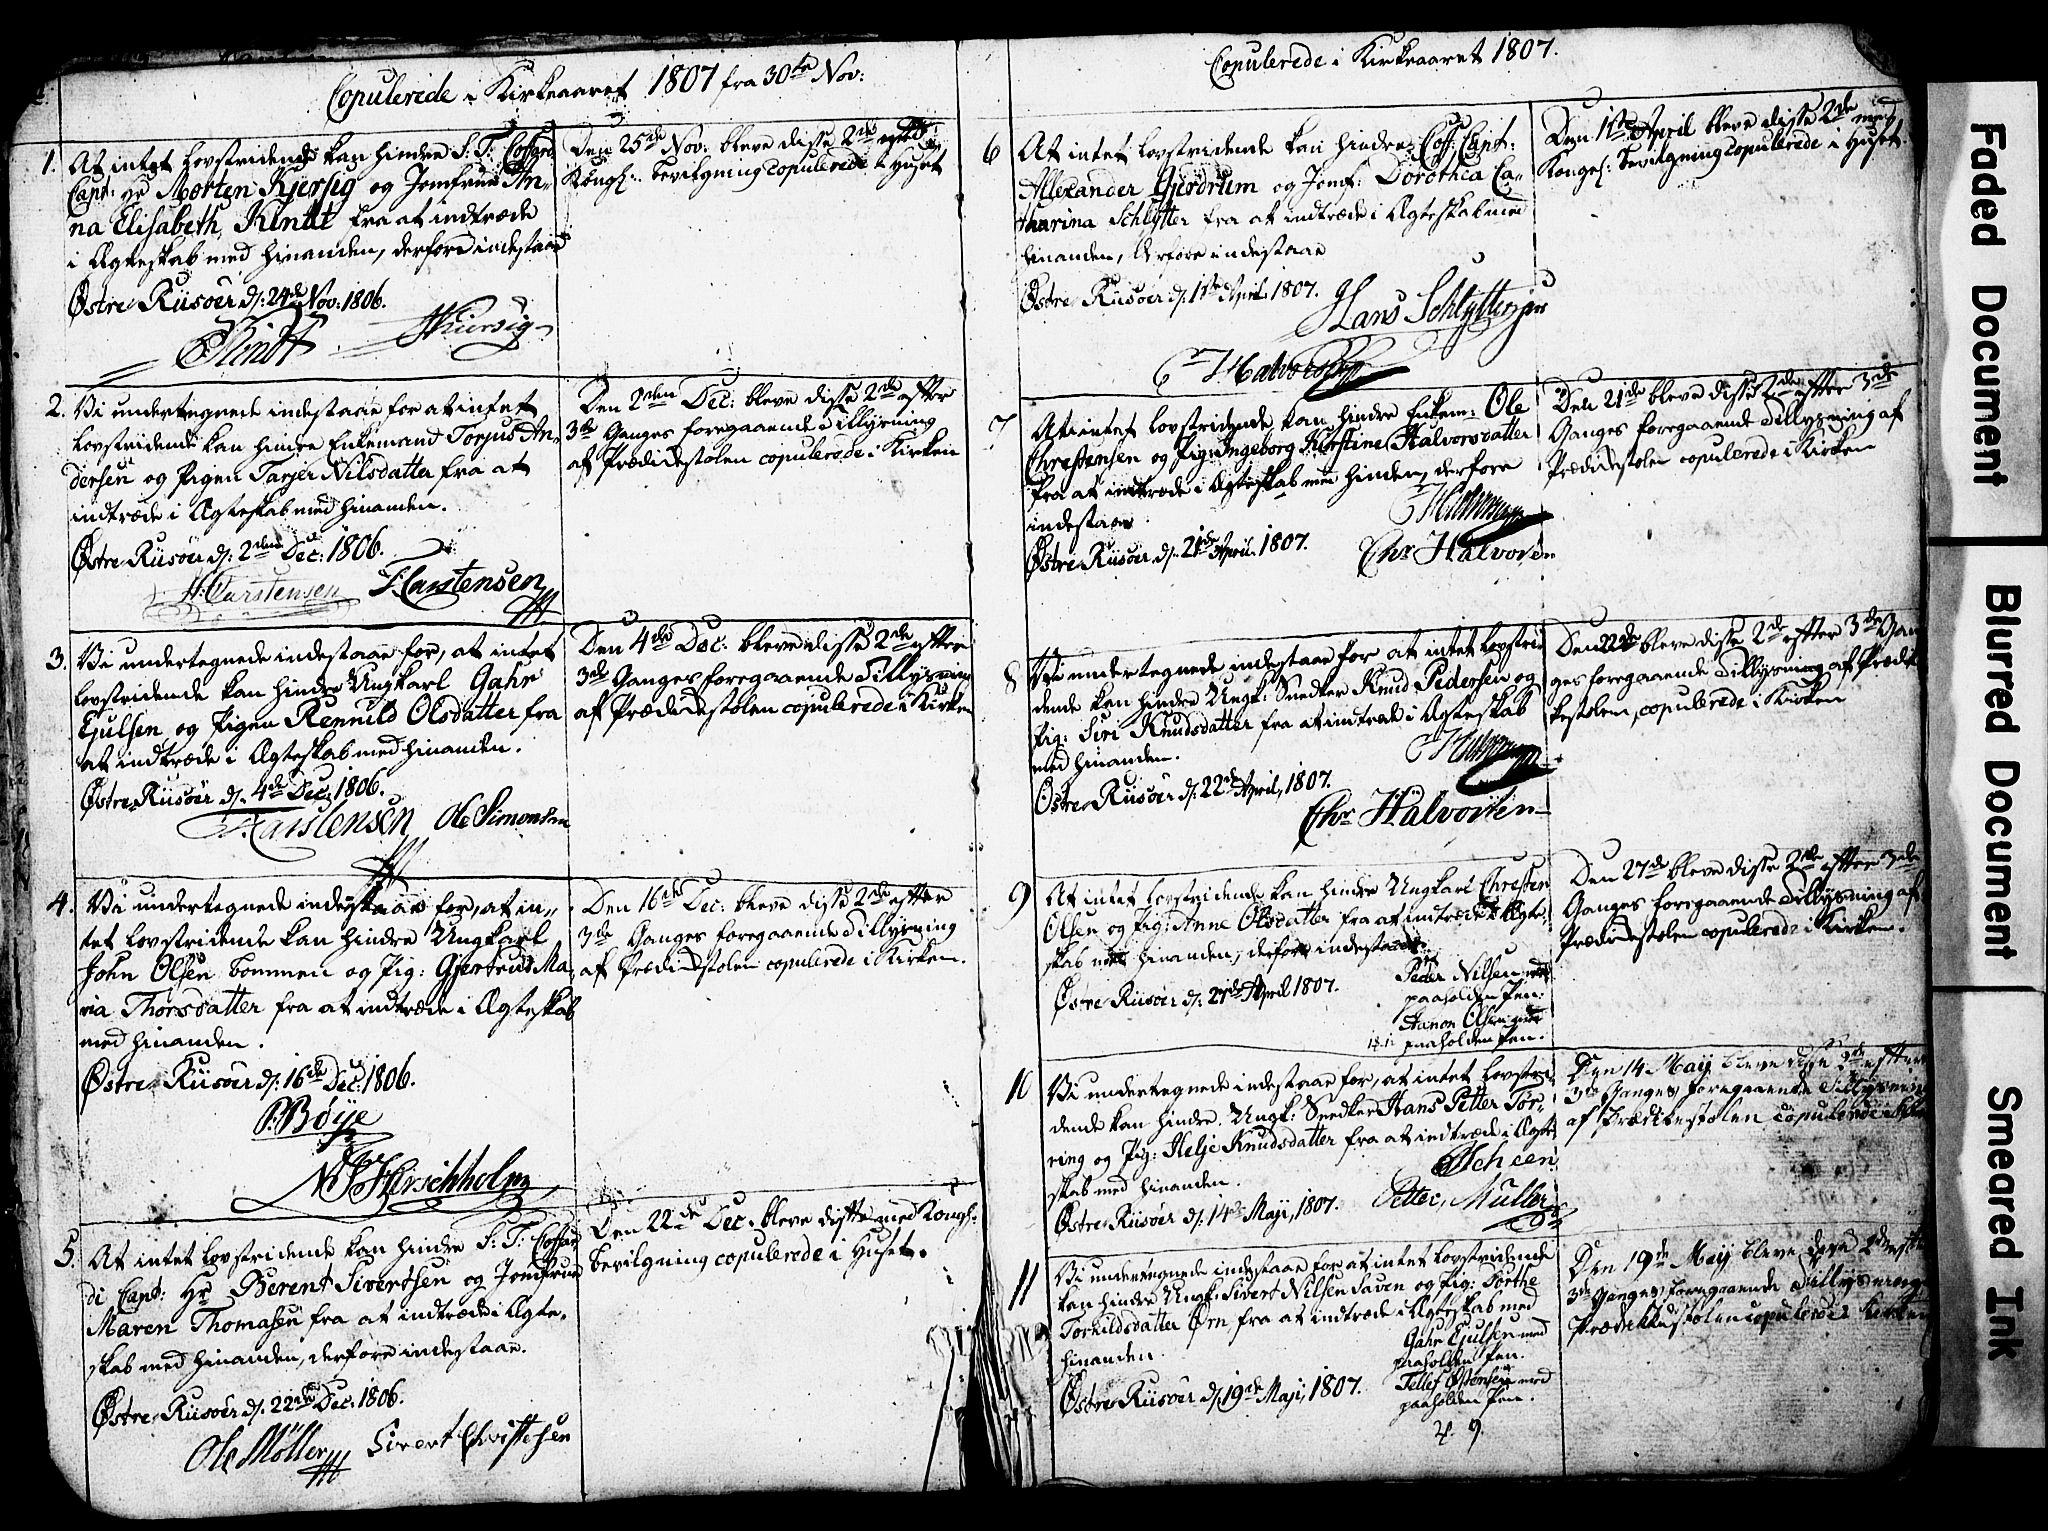 Copulerede i Kirkeaaret 1807 fra 30te Nov:
1. At intet lovstridende kan hindre S. T.
Capt: Hr Morten Kjersig og Jomfrue An-
na Elisabeth Klndt fra at indtræde
i Ægteskab med hinanden, derfore indestaae
Østre Riisøer d: 24de Nov: 1806.
Den 25de Nov: bleve disse 2de efter
Kongl: bevilgning copulerede i Huset
2. Vi undertegnede indestaae for at intet
lovstridende kan hindre Enkemand Torjus An-
dersen og Pigen Tarjer Nilsdatter fra at
indtræde i Ægteskab med hinanden.
Østre Riisøer d: 2den Dec: 1806.
H. Carstensen F. Carstensen
Den 2den Dec: bleve disse 2de efter
3de Ganges foregaaende Tillysning
af Prædikestolen copulerede i Kirken
3. Vi undertegnede indestaae for, at intet
lovstridende kan hindre Ungkarl Gahr
Ejulsen og Pigen Rennild Olsdatter fra
at indtræde i Ægteskab med hinanden.
Østre Riisøer d: 4de Dec: 1806.
Carstensen Ole Simonsen
Den 4de Dec: bleve disse 2de efter
3de Ganges foregaaende Tillysning
af Prædikestolen copulerede i Kirken
4. Vi undertegnede indestaae for, at in-
tet lovstridende kan hindre Ungkarl
John Olsen Bommen og Pig: Gjertrud Ma-
ria Thorsdatter fra at indtræde i Ægteskab
med hinanden.
Østre Riisøer d: 16de Dec: 1806.
P. Bøÿe
Hirschholm
Den 16de Dec: bleve disse 2de efter
3de Ganges foregaaende Tillysning
af Prædikestolen copulerede i Kirken.
5. At intet lovstridende kan hindre S: T: Coffar
di Capt: Hr Berent Sivertsen og Jomfrue
Maren Thomasen fra at indtræde i Ægte-
skab med hinanden, derfore indestaae.
Østre Riisøer d: 22de Dec: 1806.
Ole Møller Sivert Christensen
Den 22de Dec: bleve disse med Kongl:
bevilgning copulerede i Huset.
Copulerede i Kirkeaaret 1807.
6 At intet lovstridende kan hindre Coff: Capt:
Allexander Gjerdrum og Jomf: Dorothea Ca-
tharina Schlytter fra at indtræde i Ægteskab med
hinanden, derfore indestaae
Østre Riisøer d: 11te April 1807.
Hans Schlytter jun
Halvorsen
Den 11te April bleve disse 2de med
Kongel: bevilgning copulerede i Huset.
7 At intet lovstridende kan hindre Enkem: Ole
Christensen og Pig: Ingeborg Kirstine Halvorsdatter
fra at indtræde i Ægteskab med hinden, derfore
indestaae
Østre Riisøer d: 21de April 1807.
Chr Halvorsen
Den 21de bleve disse 2de efter 3de
Ganges foregaaende Tillysning af
Prædikestolen copulerede i Kirken
8 Vi undertegnede indestaae for at intet lovstri
dende kan hindre Ungk: Snedker Knud Pedersen og
Pig: Siri Knudsdatter fra at indtræde i Ægteskab
med hinanden.
Østre Riisøer d: 22de April, 1807.
Chr Halvorsen
Den 22de bleve disse 2de efter 3de Gan
ges foregaaende Tillysning af Prædi
kestolen, copulerede i Kirken
9 At intet lovstridende kan hindre Ungkarl Christen
Olsen og Pig: Anne Olsdatter fra at indtræde i Ægte-
skab med hinanden, derfore indestaae.
Østre Riisøer d: 27de April 1807.
Peder Nilsen med
paaholden Pen.
Aanon Olsen med
paaholden Pen.
Den 27de bleve disse 2de efter 3de
Ganges foregaaende Tillysning af
Prædikestolen copulerede i Kirken.
10 Vi undertegnede indestaae for, at intet lovstri-
dende kan hindre Ungk: Snedker Hans Petter Tør-
ring og Pig: Helje Knudsdatter fra at indtræde i Ægte
skab med hinanden.
Østre Riisøer d: 14de Maji, 1807.
Scheen
Petter Müller
Den 14 Maÿ bleve disse 2de efter
3de Ganges foregaaende Tillysning
af Prædikestolen copulerede i
11 Vi undertegnede indestaae for at intet lovstridende
kan hindre Ungk: Sivert Nilsen Saven og Pig: Torthe
Torkildsdatter Ørn, fra at indtræde i Ægteskab med
hinanden.
Østre Riisøer d: 19de Maji, 1807.
Gahr Ejulsen med
paaholden Pen.
Tellef Østensen med
paaholden Pen.
Den 19de Maÿ bleve disse 2de efter
3de Ganges foregaaende Tillysning
Prædikkestolen copulerede i Kirken
Faded Document
Blurred Document
Smeared Ink